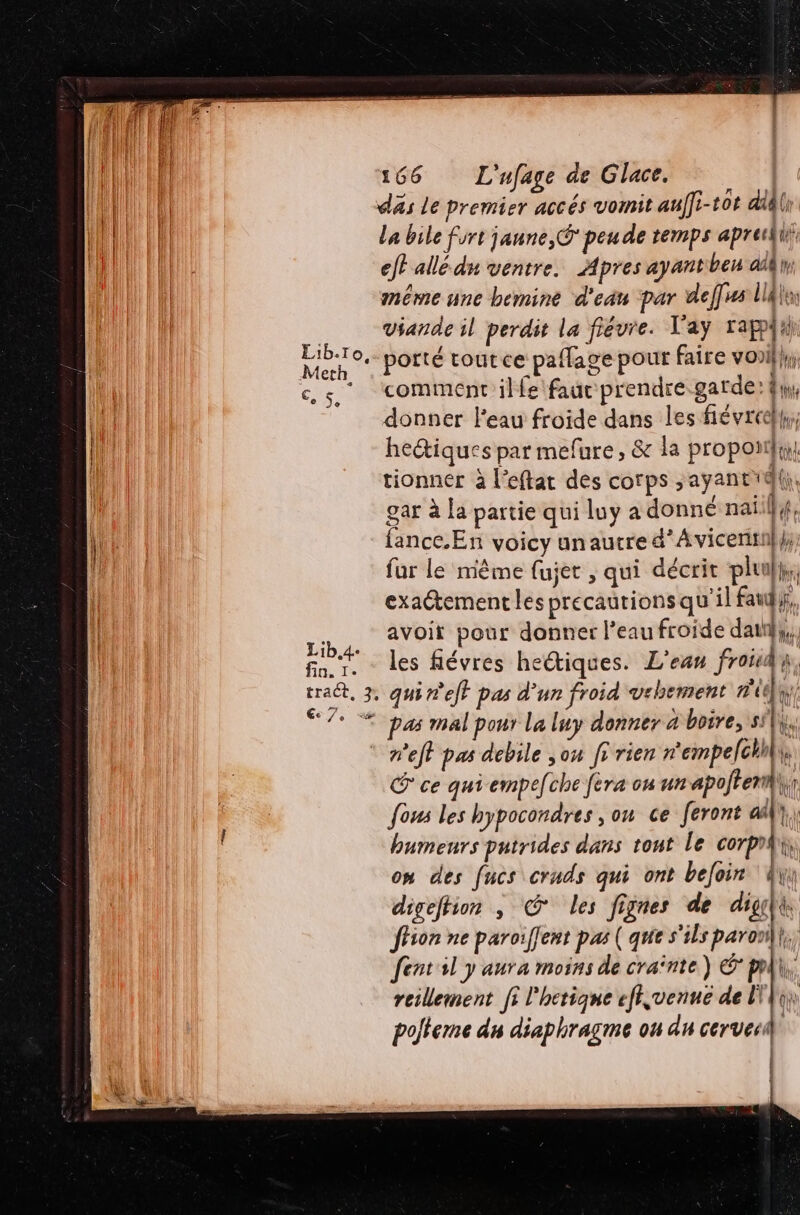 166 L'uſage de Glace.
dãs le premier accés vomit auſſi-tôt
la bile fort jaune, & peu de temps
eſt allé du ventre. Apres ayant beu
méme une hemine d'eau par deſſus
viande il perdit la fiévre. I'ay
Lib.10. porté tout ce paſſage pour faire
Meth comment il ſe faut prendre garde:
c. 5. donner l'eau froide dans les
hectiques par meſure, & la
tionner à l'eſtat des corps, ayant
gar à la partie qui luy a donné
ſance. En voicy un autre d'
ſur le même ſujet, qui décrit
exactement les precautions qu'il
avoir pour donner l'eau froide
Lib.4. les fiévres hectiques. L'eau
fin. 1.
tract. 3. qui n'eſt pas d'un froid vehement
c. 7. pas mal pour la luy donner à boire,
n'eſt pas debile, ou ſi rien
& ce qui empeſche ſera ou un
ſous les hypocondres, ou ce ſeront
humeurs putrides dans tout le
ou des ſucs cruds qui ont beſoin
digeſtion, & les ſignes de
ſtion ne paroiſſent pas (que s'ils
ſent il y aura moins de crainte) &
reillement ſi l'hetique eſt venuë de
poſteme du diaphragme ou du